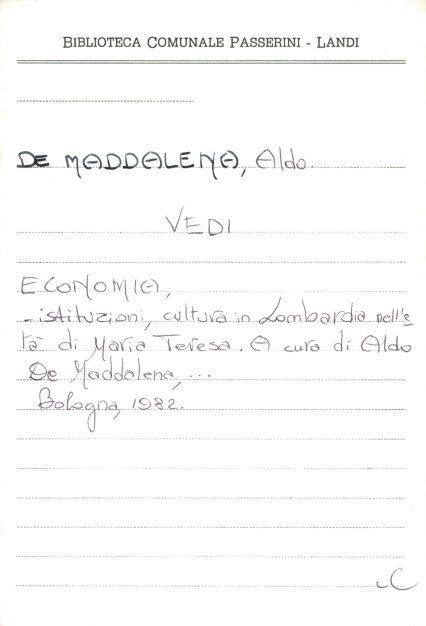 BIBLIOTECA COMUNALE PASSERINI - LANDI
DE MADDALENA, Aldo.
VEDI
ECONOMIA,
- istituzioni, cultura in Lombardia nell'e
tà di Maria Teresa. A cura di Aldo
De Maddalena, ...
Bologna, 1982.